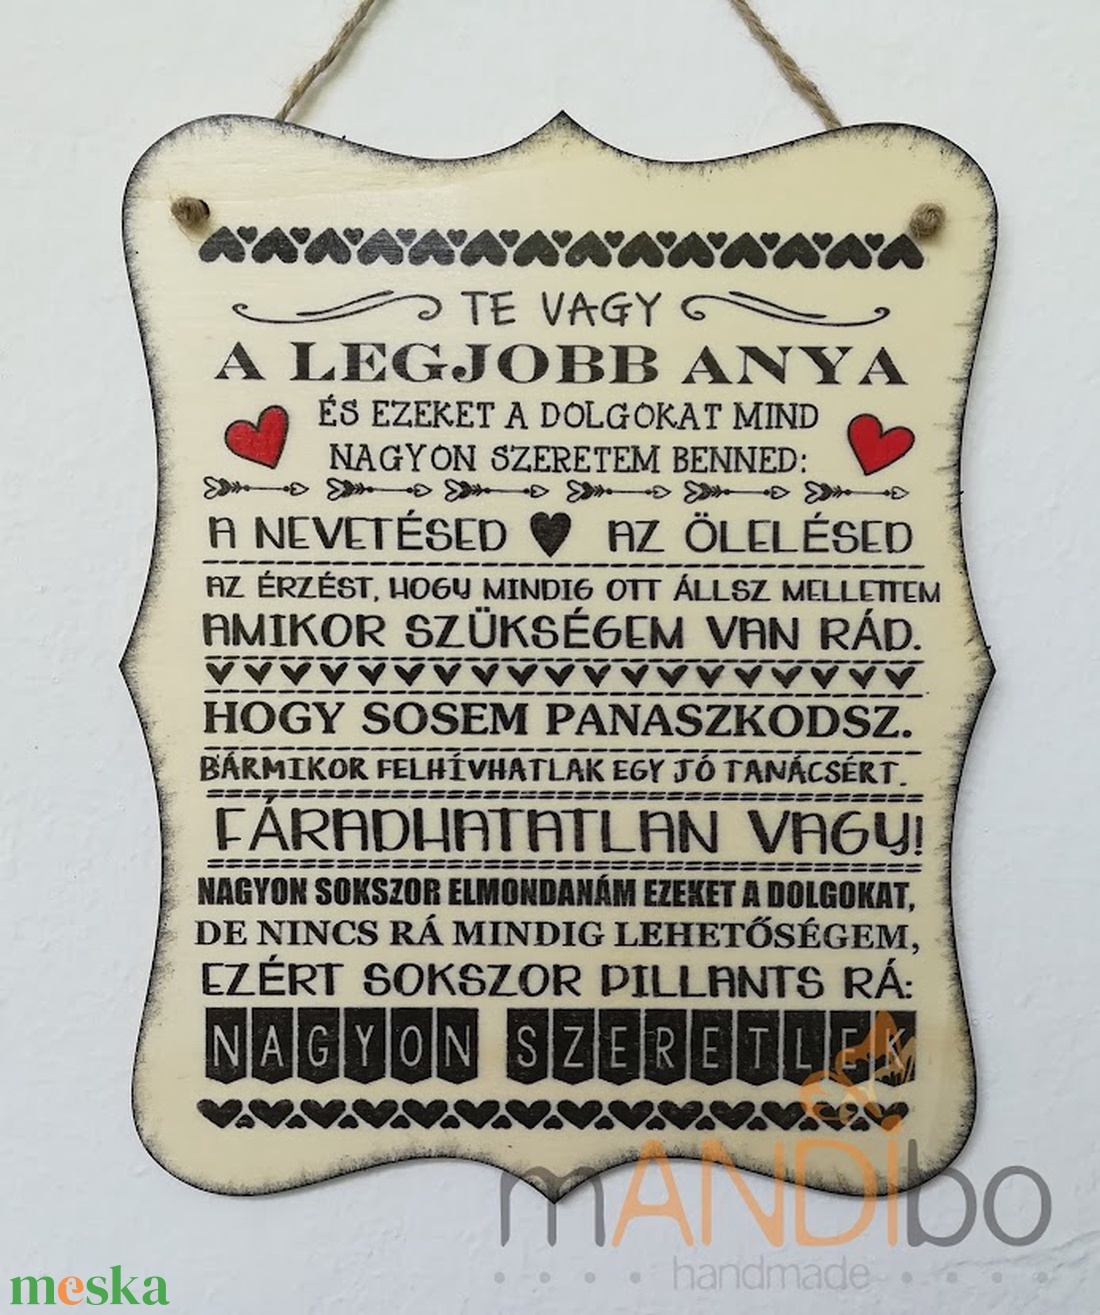 TE VAGY
A LEGJOBB ANYA
ÉS EZEKET A DOLGOKAT MIND
NAGYON SZERETEM BENNED:
A NEVETÉSED AZ ÖLELÉSED
AZ ÉRZÉST, HOGY MINDIG OTT ÁLLSZ MELLETTEM
AMIKOR SZÜKSÉGEM VAN RÁD.
HOGY SOSEM PANASZKODSZ.
BÁRMIKOR FELHÍVHATLAK EGY JÓ TANÁCSÉRT.
FÁRADHATATLAN VAGY!
NAGYON SOKSZOR ELMONDANÁM EZEKET A DOLGOKAT,
DE NINCS RÁ MINDIG LEHETŐSÉGEM,
EZÉRT SOKSZOR PILLANTS RÁ:
NAGYON SZERETLEK
mANDIbo
handmade
meska